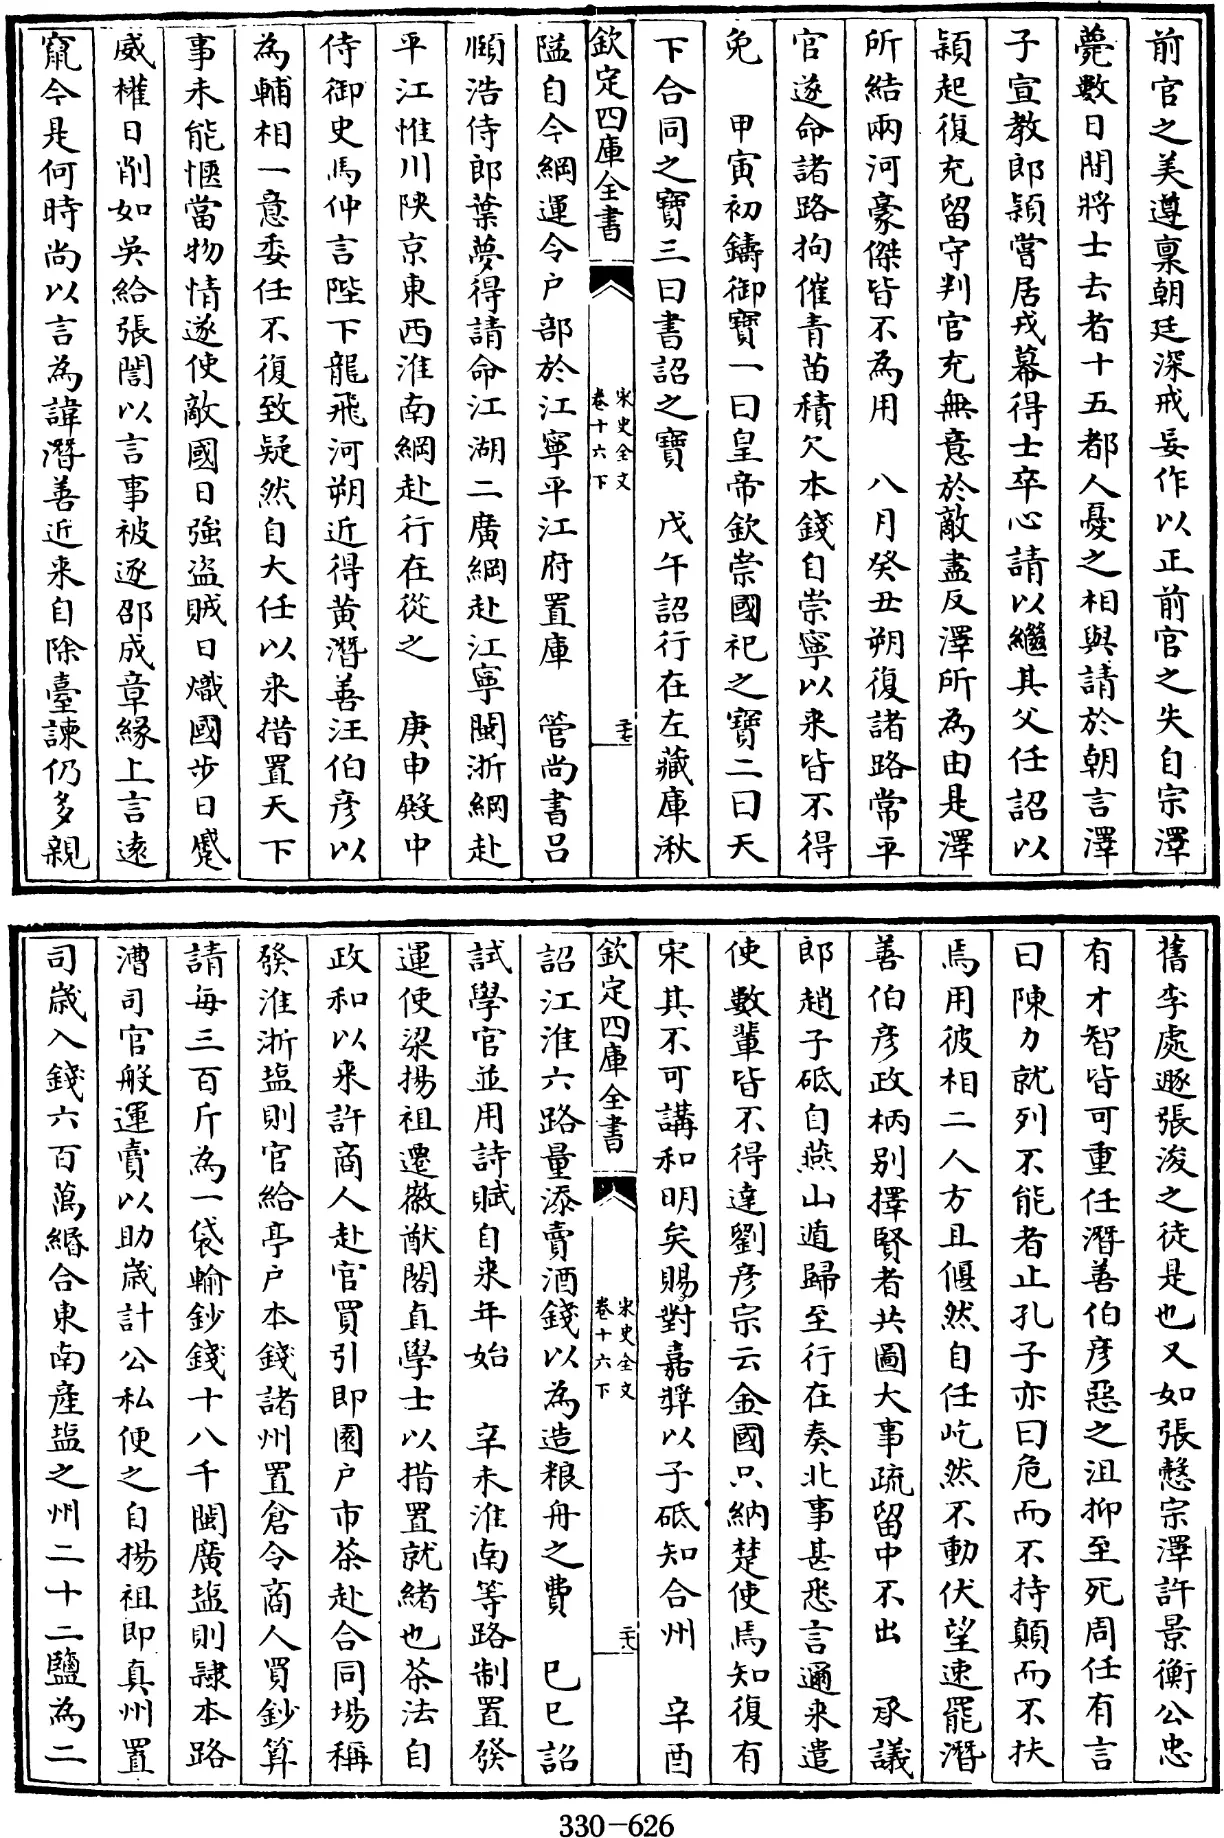 前官之美遵稟朝廷深戒妄作以正前官之失自宗澤
薨數日間將士去者十五都人憂之相與請於朝言澤
子宣教郎穎嘗居戎幕得士卒心請以繼其父任詔以
穎起復充留守判官充無意於敵盡反澤所為由是澤
所結兩河豪傑皆不為用　八月癸丑朔復諸路常平
官遂命諸路拘催青苗積欠本錢自崇寧以来皆不得
免　甲寅初鑄御寶一曰皇帝欽崇國祀之寶二曰天
下合同之寶三曰書詔之寶　戊午詔行在左藏庫湫
欽定四庫全書
宋史全文
卷十六下
三十七
隘自今綱運令户部於江寧平江府置庫　管尚書吕
頤浩侍郎葉夢得請命江湖二廣綱赴江寧閩浙綱赴
平江惟川陜京東西淮南綱赴行在從之　庚申殿中
侍御史馬伸言陛下龍飛河朔近得黄潛善汪伯彦以
為輔相一意委任不復致疑然自大任以来措置天下
事未能愜當物情遂使敵國日強盗賊日熾國步日蹙
威權日削如吳給張誾以言事被逐邵成章緣上言遠
竄今是何時尚以言為諱潛善近来自除臺諫仍多親
舊李處遯張浚之徒是也又如張慤宗澤許景衡公忠
有才智皆可重任潛善伯彦惡之沮抑至死周任有言
曰陳力就列不能者止孔子亦曰危而不持顛而不扶
焉用彼相二人方且偃然自任屹然不動伏望速罷潛
善伯彦政柄别擇賢者共圖大事疏留中不出　承議
郎趙子砥自燕山遁歸至行在奏北事甚悉言邇来遣
使數輩皆不得達劉彦宗云金國只納楚使焉知復有
宋其不可講和明矣賜對嘉奬以子砥知合州　辛酉
欽定四庫全書
宋史全文
卷十六下
三十八
詔江淮六路量添賣酒錢以為造粮舟之費　已巳詔
試學官並用詩賦自来年始　辛未淮南等路制置發
運使梁揚祖遷徽猷閣直學士以措置就緒也茶法自
政和以来許商人赴官買引即園户市茶赴合同場稱
發淮浙塩則官給亭户本錢諸州置倉令商人買鈔算
請每三百斤為一袋輸鈔錢十八千閩廣塩則隷本路
漕司官般運賣以助歲計公私便之自揚祖即真州置
司歲入錢六百萬緡合東南産塩之州二十二鹽為二
330-626